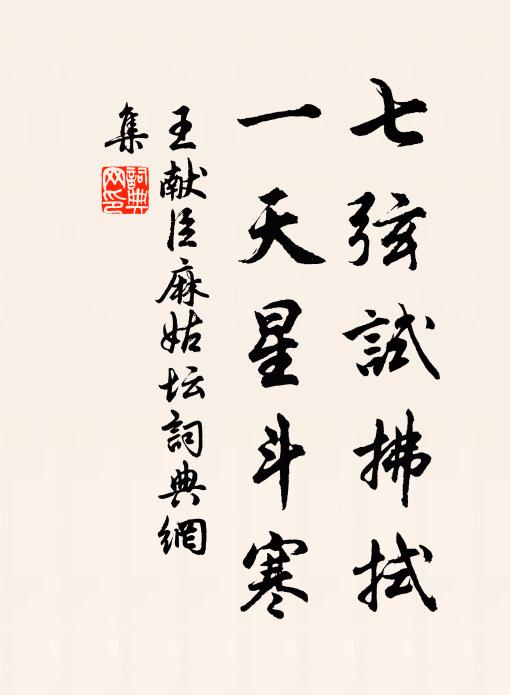 七弦試拂拭
一天星斗寒
王献臣麻姑坛詞典網
集
詞典
网印